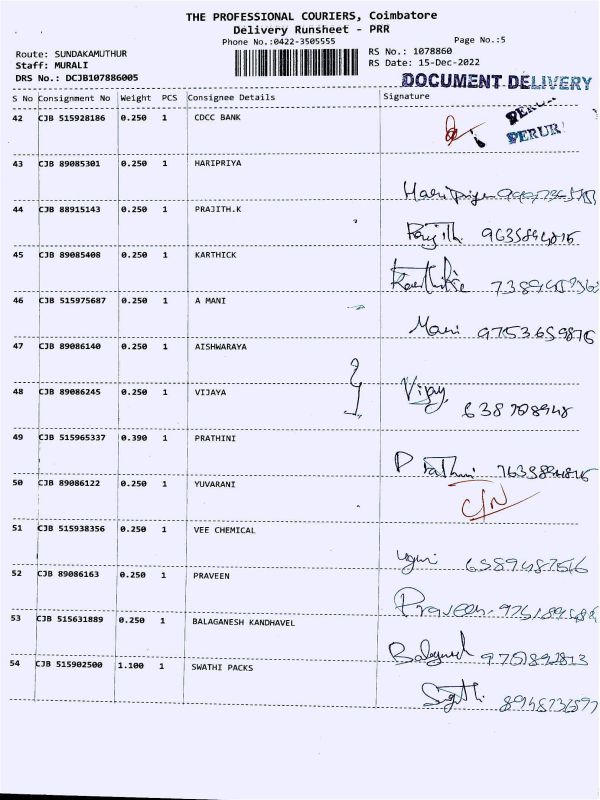 THE PROFESSIONAL COURIERS, Coimbatore
Delivery Runsheet - PRR
Phone No.:0422-3505555 Page No.:5
Route: SUNDAKAMUTHUR RS No.: 1078860
Staff: MURALI RS Date: 15-Dec-2022
DRS No.: DCJB107886005 DOCUMENT DELIVERY
S No Consignment No Weight PCS Consignee Details Signature
42 CJB 515928186 0.250 1 CDCC BANK
PERUR
43 CJB 89085301 0.250 1 HARIPRIYA
Haripriya
44 CJB 88915143 0.250 1 PRAJITH.K
Prajith. 9635894875
45 CJB 89085408 0.250 1 KARTHICK
Karthike
46 CJB 515975687 0.250 1 A MANI
Mani 9753659875
47 CJB 89086140 0.250 1 AISHWARAYA
48 CJB 89086245 0.250 1 VIJAYA
Vijay
49 CJB 515965337 0.390 1 PRATHINI
Prathini
50 CJB 89086122 0.250 1 YUVARANI
C/N
51 CJB 515938356 0.250 1 VEE CHEMICAL
52 CJB 89086163 0.250 1 PRAVEEN
Praveen
53 CJB 515631889 0.250 1 BALAGANESH KANDHAVEL
54 CJB 515902500 1.100 1 SWATHI PACKS